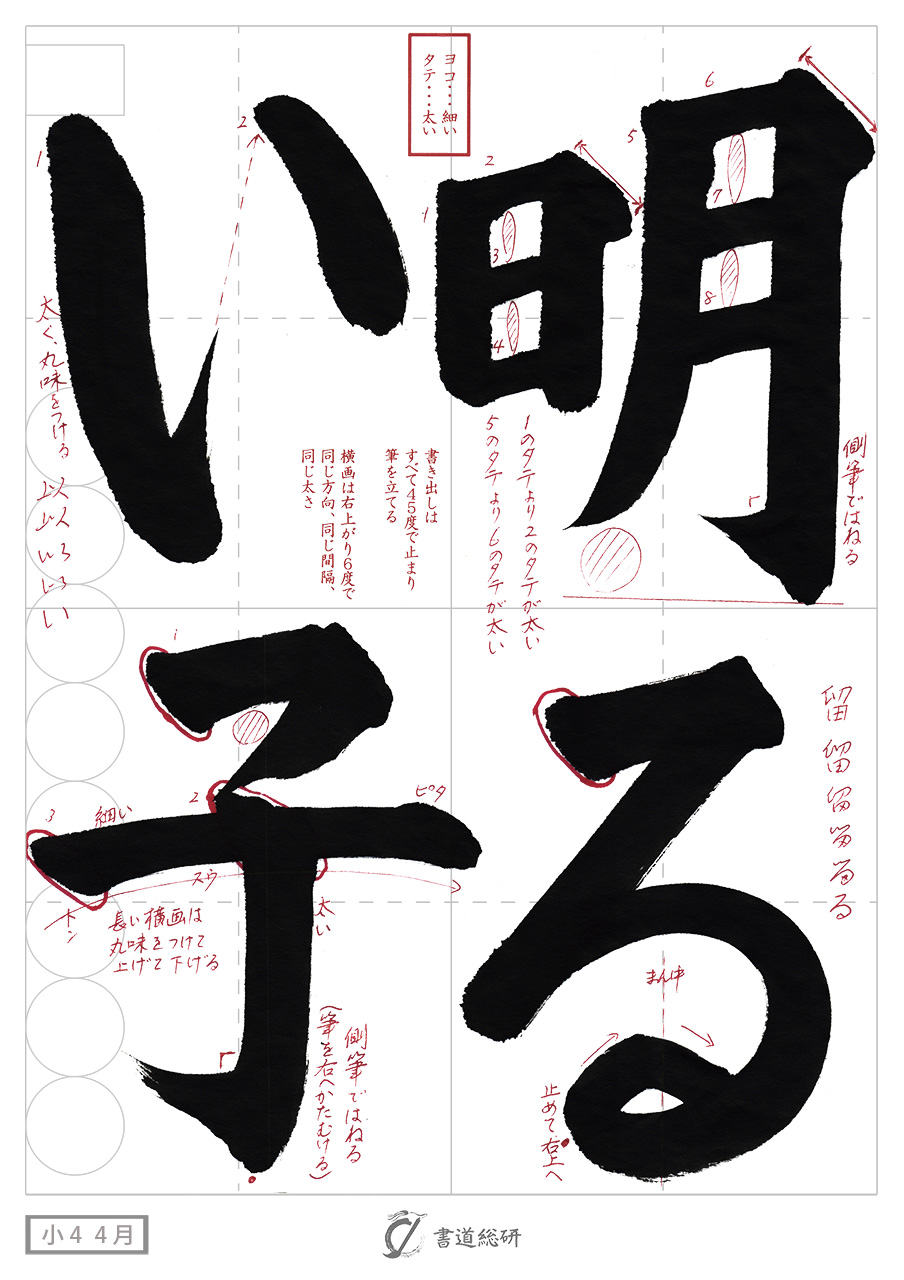 明るい子
ヨコ・・・細い
タテ・・・太い
6
5
7
8
2
1
3
4
側筆ではねる
1のタテより2のタテが太い
5のタテより6のタテが太い
書き出しは
すべて45度で止まり
筆を立てる
横画は右上がり6度で
同じ方向、同じ間隔、
同じ太さ
2
1
太く、丸味をつける
以
以
い
留
留
る
まん中
止めて右上へ
1
2
3
細い
ピタ
スウ
トン
太い
長い横画は
丸味をつけて
上げて下げる
側筆ではねる
(筆を右へかたむける)
小4 4月
書道総研